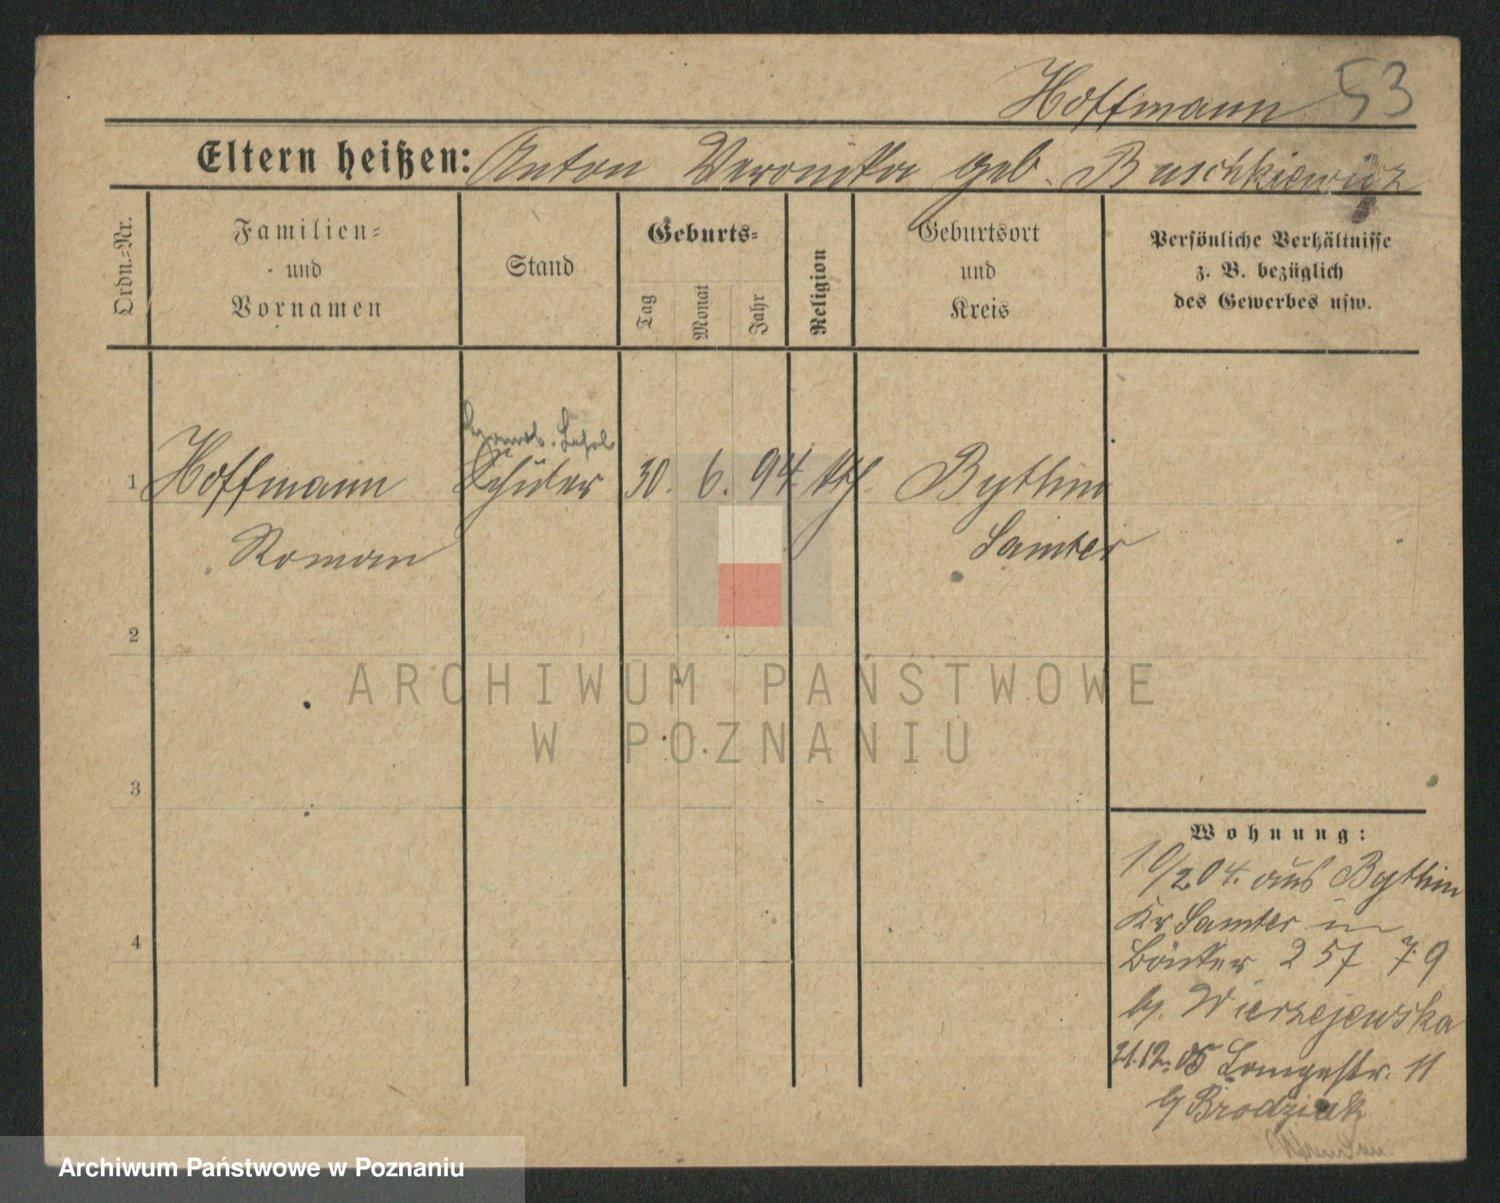 Hoffmann 53
Eltern heißen: Anton Veronika geb. Buschkiewicz
Ordn.-Nr.
Familien-
und
Vornamen
Stand
Geburts-
Tag
Monat
Jahr
Religion
Geburtsort
und
Kreis
Persönliche Verhältnisse
z. B. bezüglich
des Gewerbes usw.
1 Hoffmann Schüler 30. 6. 94. kth. Bythin
Roman Samter
2
3
4
Wohnung:
10/2 04. aus Bythin
Kr Samter in
257 7.9
bj. Wierzejewska
21.12.05 Langestr. 11
bj Brodziak
ARCHIWUM PAŃSTWOWE
W POZNANIU
Archiwum Państwowe w Poznaniu